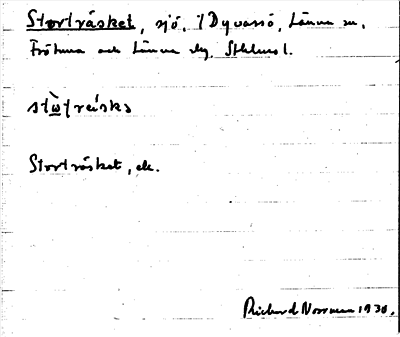 Stortråsket, sjö, i Dyvassö, Länna sn,
Frötuna och Länna slg, Sthlms l.
Stortråsket, ek.
Richard Norrman 1930.